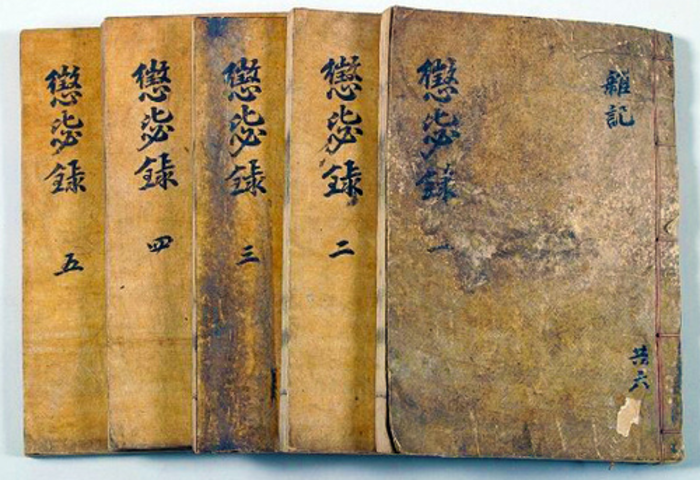 雜記
共六
懲毖録 一
懲毖録 二
懲毖録 三
懲毖録 四
懲毖録 五